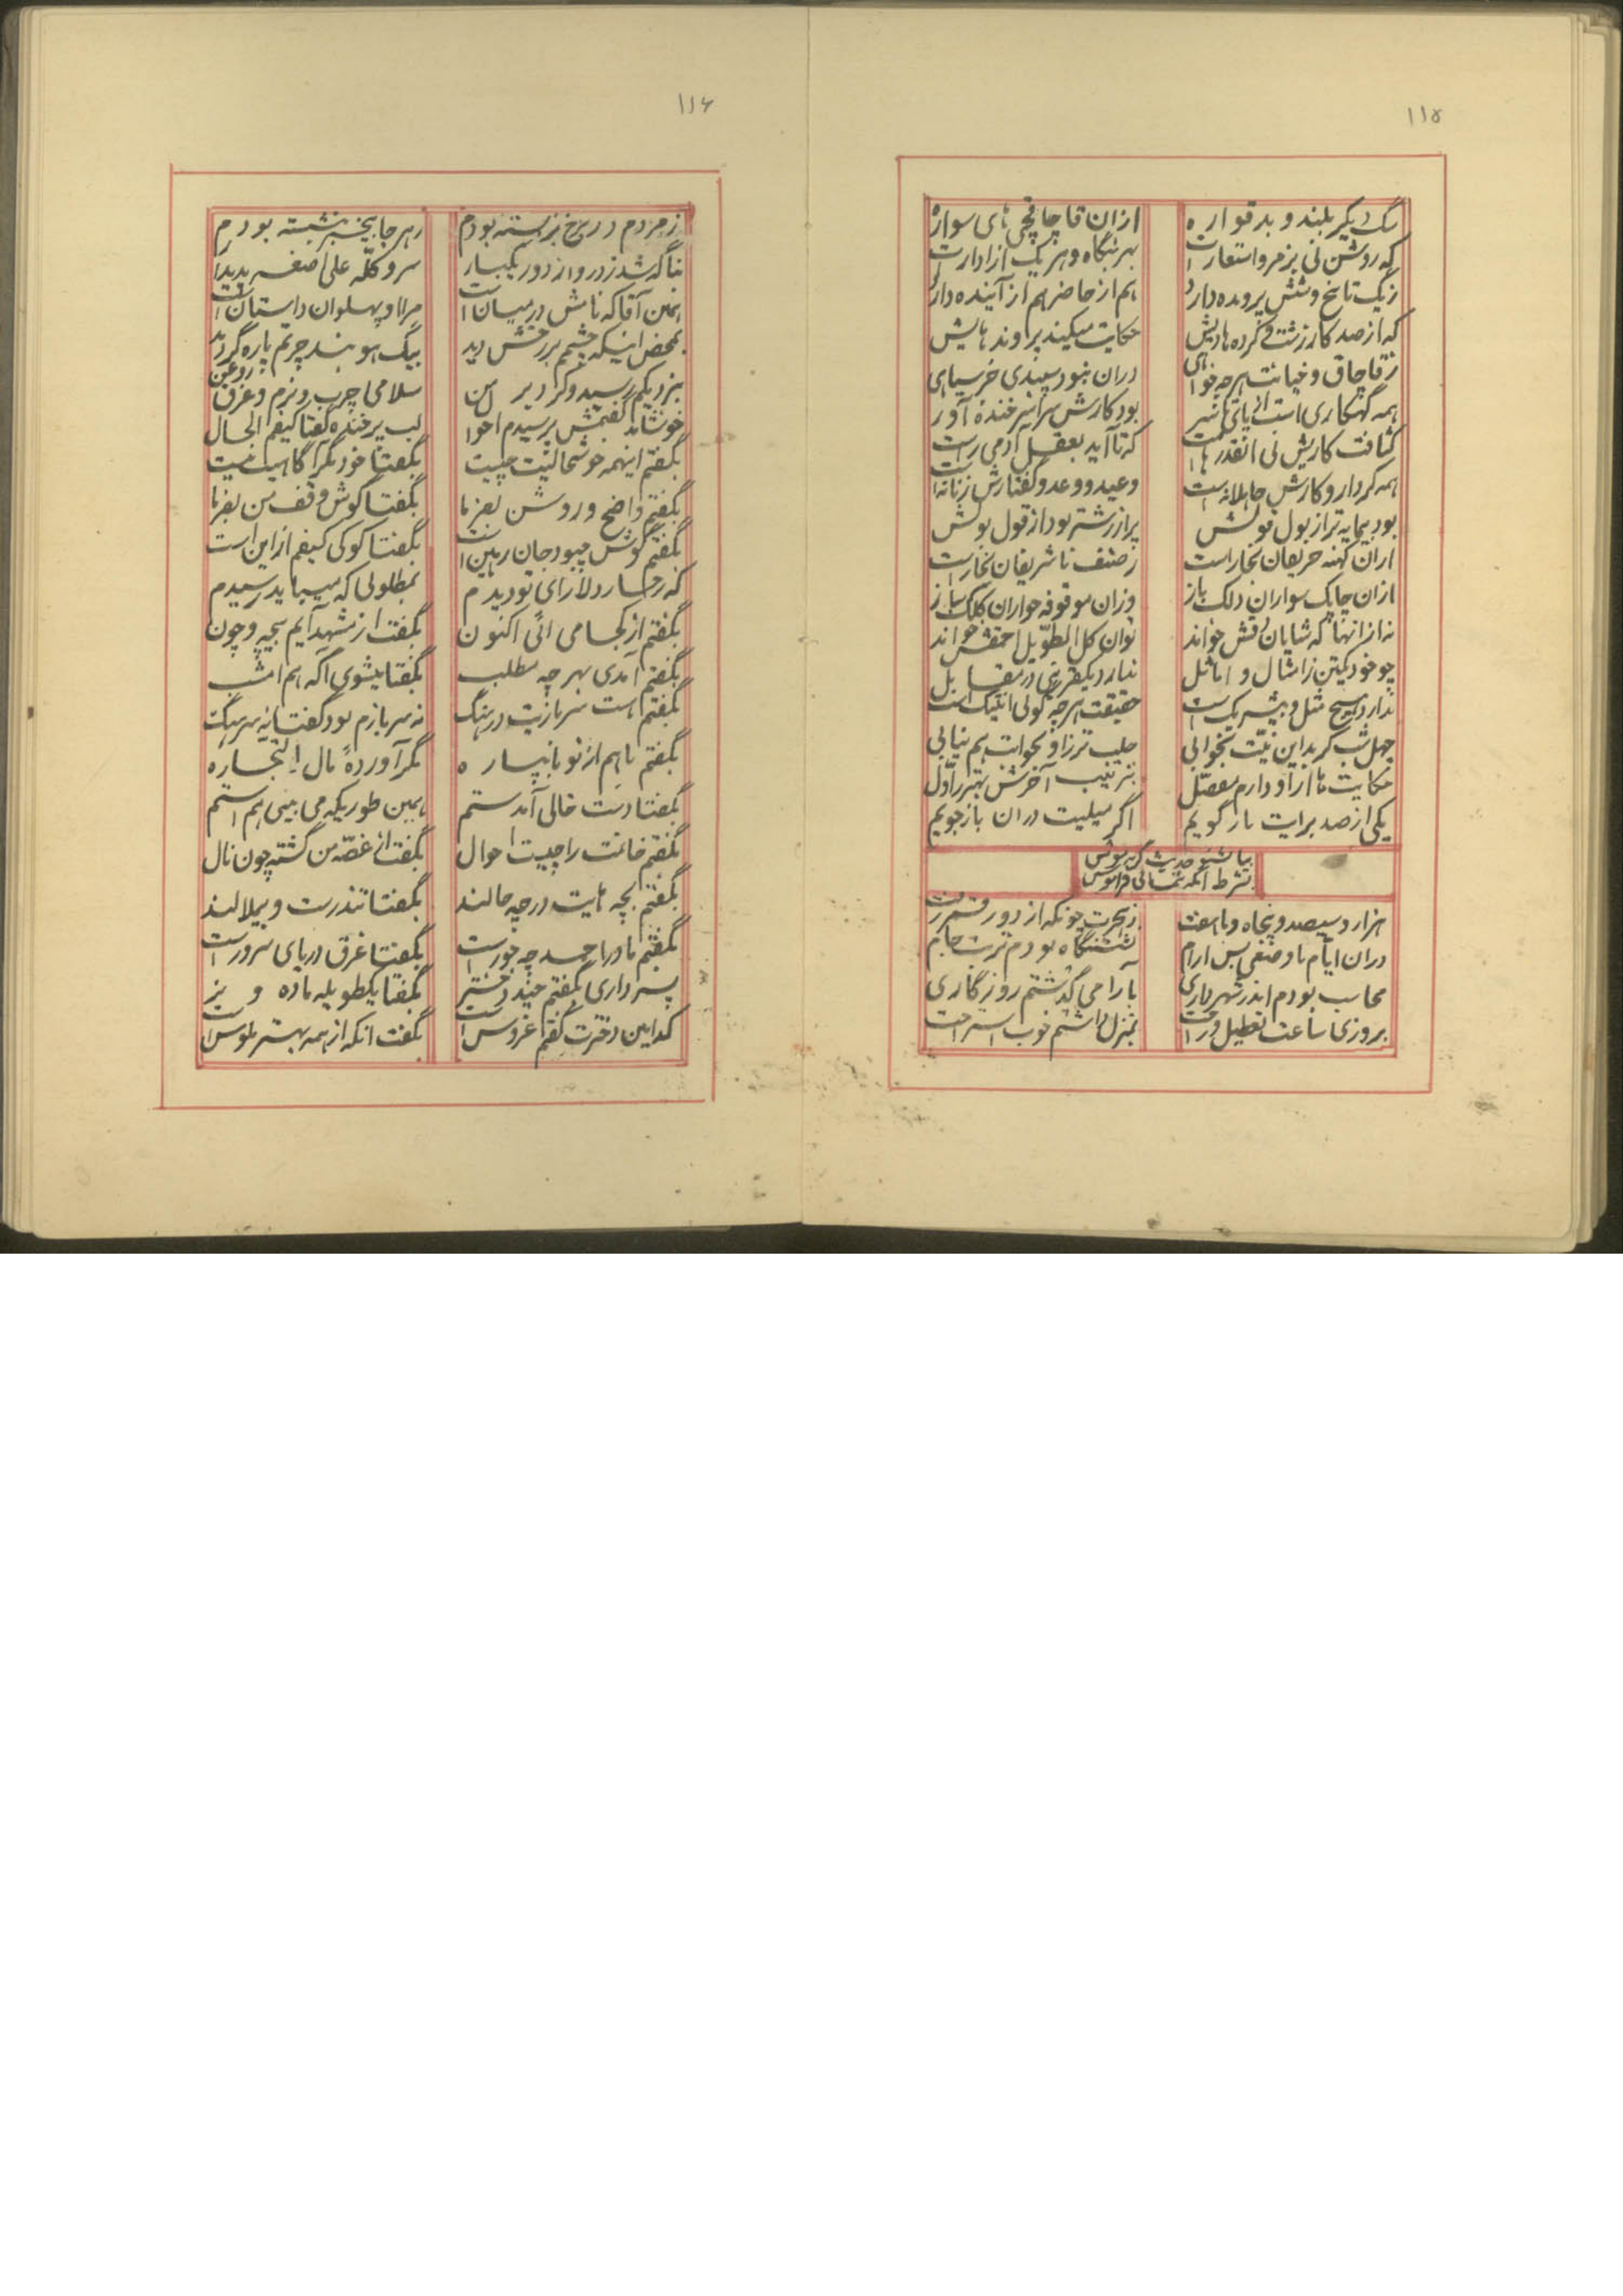 ۱۱۵
سگ دیگر بلند و بدقواره
ازان قاچاقچی های سواره
که روشن نی بزمر و استعار است
بهر بنگاه و هر یک از ادارات
زیک تا پنج و شش پرونده دارد
هم از حاضر هم از آینده دارد
که از صد کار زشت و کرده هایش
حکایت میکند پرونده هایش
زقاچاق و خیانت هرچه خواهی
دران نبود سپیدی جز سیاهی
همه گهکاری است از پای تا سر
بود کارش سراسر خنده آور
کثافت کاریش نی انقدرها است
که تا آید بعقل آدمی راست
همه کردار و کارش جاهلانه است
وعید و وعد و گفتارش زنانه است
بود بیمایه تر از بول قولش
پر از رشته بود از قول بولش
ازان کهنه حریفان بخاراست
زصنف ناشریفان بخاراست
ازان چابک سواران دلک باز
وزان موقوفه خواران کلک ساز
نه از انها که شایان لایقش خواند
توان کل الطویل احمقش خواند
چو خود یکتن زامثال و اماثل
ندارد یکقرینی در مقابل
ندارد هیچ مثل و بیشریک است
حقیقت هرچه گوئی انتیک است
چهل شب گر بداین نیت بخوابی
جلب تر زاو بخوابت هم نیابی
حکایت ها ازاو دارم مفصل
بترتیب آخرش بتر ز اول
یکی از صد برایت باز گویم
اگر میلیت دران باز جویم
بیا بشنو حدیث گربه موش
بشرط انکه ننمائی فراموش
هزار و سیصد و پنجاه و با هفت
زهجرت چونکه از دور قمر رفت
دران ایام ما و ضفی بس ارام
نشتنگاه بودم تربت جام
محاسب بودم اندر شهرداری
بآرامی گذشتم روزگاری
بروزی ساعت تعطیل و راحت
بمنزل داشتم خوب استراحت
۱۱۶
زمردم در برخ بربسته بودم
زهر جا بیخبر بنشسته بودم
بناگه شد زدرواز دور یکبار
سر و کله علی اصغر پدیدار
همین آقا که نامش در میان است
مرا او پهلوان داستان است
بمحض اینکه چشمم بر رخش دید
بیگ هو بند چرتم پاره گردید
بنزدیکم رسید و کرد بر من
سلامی چرب و نرم و غرق روغن
خوشامد گفتمش پرسیدم احوال
لب پر خنده گفتا کیفم الحال
بگفتم اینهمه خوشحالیت چیست
بگفتا خود مگر آگاهیت نیست
بگفتم واضح و روشن بفرما
بگفتا گوش وقف من بفرما
بگفتم گوش چبود جان رهین است
بگفتا کوکی کیفم از این است
که رخسار دلارای تو دیدم
بمطلوبی که میباید رسیدم
بگفتم از کجا می ائی اکنون
بگفت از مشهد آیم بیچه و چون
بگفتم آمدی بهر چه مطلب
بگفتا بیشوی آگه هم امشب
بگفتم هست سربازیت در هنگ
نه سربازم بود گفتا نه سرهنگ
بگفتم ما هم از تو نابیاره
مگر آورده مال التجاره
بگفتا دست خالی آمدستم
همین طوریکه می بینی هم استم
بگفتم خانمت را چیست احوال
بگفت از غصه من گشته چون نال
بگفتم بچه هایت در چه حالند
بگفتا تندرست و بیملالند
بگفتم مادر احمد چه جور است
بگفتا غرق دریای سرور است
پسر داری بگفتم چند دختر
بگفتا یکطویله ماده و نر
کدامین دخترت گفتم عروس است
بگفت انکه از همه بهتر طوس است